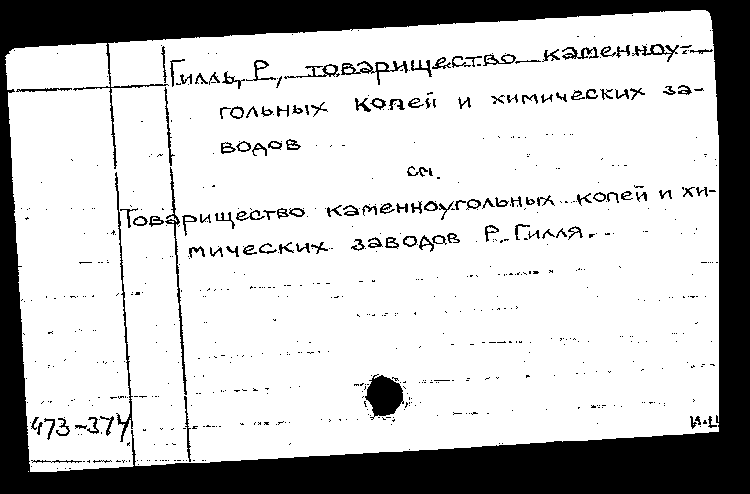 Гилль, Р., товарищество каменноу-
гольных копей и химических за-
водов
см.
Товарищество каменноугольных копей и хи-
мических заводов Р. Гилля.
473-374